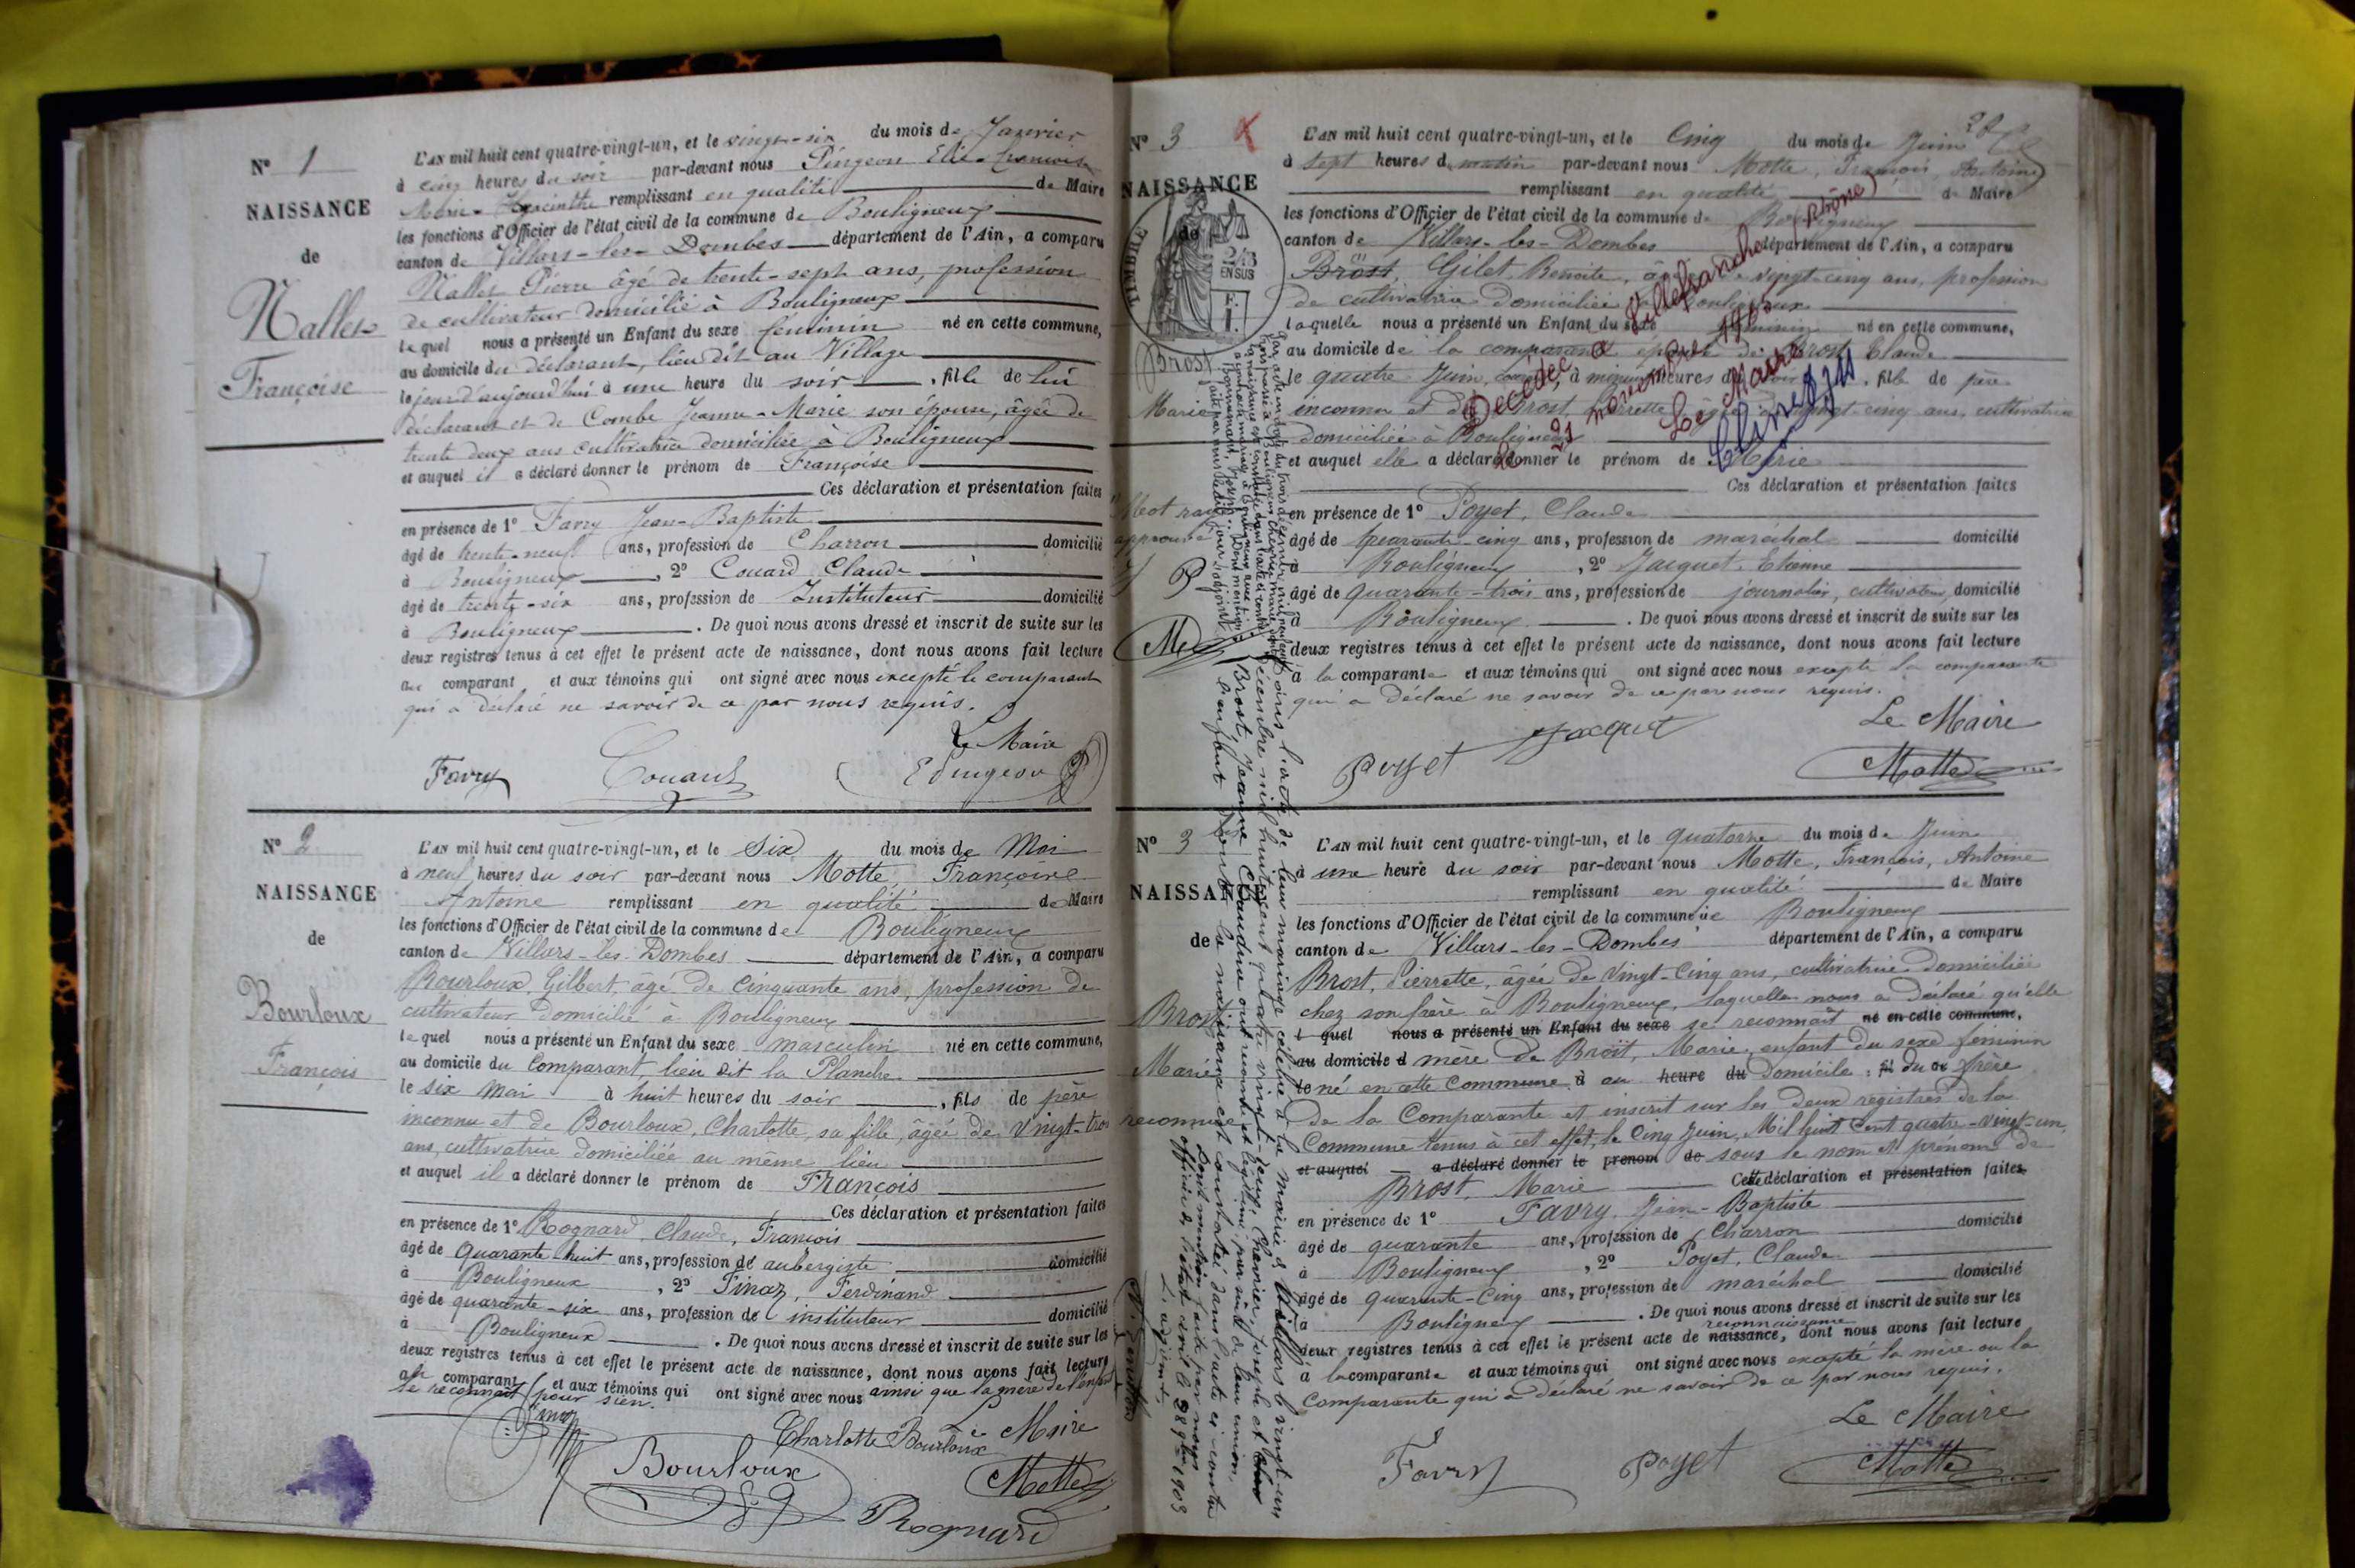 N° 1
NAISSANCE
de
Nallet
Françoise
L'AN mil huit cent quatre-vingt-un, et le vingt-six du mois de Janvier
à cinq heures du soir par-devant nous Pingeon Elie-François
Marie-Hyacinthe remplissant en qualité de Maire
les fonctions d'Officier de l'état civil de la commune de Bouligneux
canton de Villars-les-Dombes département de l'Ain, a comparu
Nallet Pierre âgé de trente-sept ans, profession
de cultivateur domicilié à Bouligneux
lequel nous a présenté un Enfant du sexe féminin né en cette commune,
au domicile du déclarant, lieu dit au Village
le jour d'aujourd'hui à une heure du soir, fille de lui
déclarant et de Combe Jeanne-Marie son épouse, âgée de
trente deux ans cultivatrice domiciliée à Bouligneux
et auquel il a déclaré donner le prénom de Françoise
Ces déclaration et présentation faites
en présence de 1° Favry Jean-Baptiste
âgé de trente-neuf ans, profession de Charron domicilié
à Bouligneux, 2° Couard Claude
âgé de trente-six ans, profession de Instituteur domicilié
à Bouligneux. De quoi nous avons dressé et inscrit de suite sur les
deux registres tenus à cet effet le présent acte de naissance, dont nous avons fait lecture
au comparant et aux témoins qui ont signé avec nous excepté le comparant
qui a déclaré ne savoir de ce par nous requis.
Le Maire
Favry Couard E Pingeon
N° 2
NAISSANCE
de
Bourloux
François
L'AN mil huit cent quatre-vingt-un, et le Six du mois de Mai
à neuf heures du soir par-devant nous Motte Françoise
Antoine remplissant en qualité de Maire
les fonctions d'Officier de l'état civil de la commune de Bouligneux
canton de Villars-les-Dombes département de l'Ain, a comparu
Bourloux, Gilbert, âgé de Cinquante ans, profession de
cultivateur domicilié à Bouligneux
lequel nous a présenté un Enfant du sexe masculin né en cette commune,
au domicile du Comparant, lieu dit la Planche
le six mai à huit heures du soir, fils de père
inconnu et de Bourloux, Charlotte, sa fille, âgée de Vingt-trois
ans, cultivatrice domiciliée au même lieu
et auquel il a déclaré donner le prénom de François
Ces déclaration et présentation faites
en présence de 1° Rognard, Claude, François
âgé de Quarante-huit ans, profession de aubergiste domicilié
à Bouligneux, 2° Finaz, Ferdinand
âgé de quarante-six ans, profession de instituteur domicilié
à Bouligneux. De quoi nous avons dressé et inscrit de suite sur les
deux registres tenus à cet effet le présent acte de naissance, dont nous avons fait lecture
au comparant et aux témoins qui ont signé avec nous ainsi que la mère de l'enfant
le reconnaît pour sien.
Finaz Charlotte Bourloux Le Maire
Bourloux Motte
Rognard
N° 3
NAISSANCE
de
TIMBRE
EN SUS
Brost
Marie
Mot rayé
approuvé
L'AN mil huit cent quatre-vingt-un, et le Cinq du mois de Juin
à Sept heures du matin par-devant nous Motte, François, Antoine
remplissant en qualité de Maire
les fonctions d'Officier de l'état civil de la commune de Bouligneux
canton de Villars-les-Dombes département de l'Ain, a comparu
Brost, Gilet Benoite, âgée de vingt-cinq ans, profession
de cultivatrice domiciliée à Bouligneux
laquelle nous a présenté un Enfant du sexe féminin né en cette commune,
au domicile de la comparante épouse de Brost Claude
le quatre Juin, à minuit heures du soir, fille de père
inconnu et de Brost, Pierrette, âgée de vingt-cinq ans, cultivatrice
domiciliée à Bouligneux
et auquel elle a déclaré donner le prénom de Marie
Ces déclaration et présentation faites
en présence de 1° Poyet, Claude
âgé de quarante-cinq ans, profession de maréchal domicilié
à Bouligneux, 2° Jacquet, Etienne
âgé de quarante-trois ans, profession de journalier, cultivateur, domicilié
à Bouligneux. De quoi nous avons dressé et inscrit de suite sur les
deux registres tenus à cet effet le présent acte de naissance, dont nous avons fait lecture
à la comparante et aux témoins qui ont signé avec nous excepté la comparante
qui a déclaré ne savoir de ce par nous requis.
Le Maire
Poyet Jacquet Motte
Décédée à Villefranche (Rhône)
le 21 novembre 1965
Le Maire
N° 3
NAISSANCE
de
Brost
Marie
reconnue
L'AN mil huit cent quatre-vingt-un, et le quatorze du mois de Juin
à une heure du soir par-devant nous Motte, François, Antoine
remplissant en qualité de Maire
les fonctions d'Officier de l'état civil de la commune de Bouligneux
canton de Villars-les-Dombes département de l'Ain, a comparu
Brost, Pierrette, âgée de Vingt-Cinq ans, cultivatrice domiciliée
chez son frère à Bouligneux, laquelle nous a déclaré qu'elle
l quel nous a présenté un Enfant du sexe se reconnaît né en cette commune,
au domicile d mère de Brost, Marie, enfant du sexe féminin
le né en cette Commune à au heure du Domicile fil du de frère
De la Comparante et inscrit sur les deux registres de la
Commune tenus à cet effet, le Cinq Juin, Mil huit Cent quatre-vingt-un,
et auquel a déclaré donner le prénom de sous le nom et prénom de
Brost, Marie Cette déclaration et présentation faites
en présence de 1° Favry, Jean-Baptiste
âgé de quarante ans, profession de Charron domicilié
à Bouligneux, 2° Poyet, Claude
âgé de quarante-Cinq ans, profession de maréchal domicilié
à Bouligneux. De quoi nous avons dressé et inscrit de suite sur les
reconnaissance
deux registres tenus à cet effet le présent acte de naissance, dont nous avons fait lecture
à la comparante et aux témoins qui ont signé avec nous excepté la mère ou la
Comparante qui a déclaré ne savoir de ce par nous requis.
Le Maire
Favry Poyet Motte